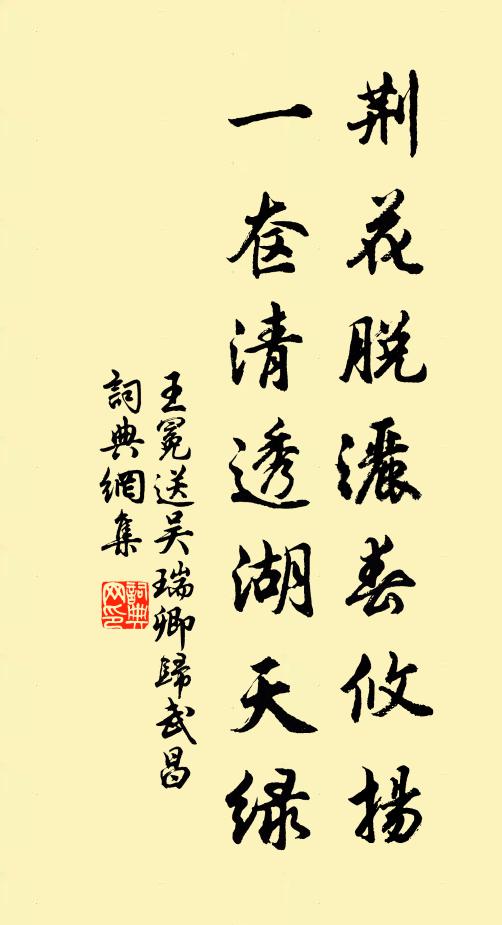 荆花脱灑春攸揚
一奁清透湖天绿
王冕送吴瑞卿歸武昌
詞典網集
詞典
网印